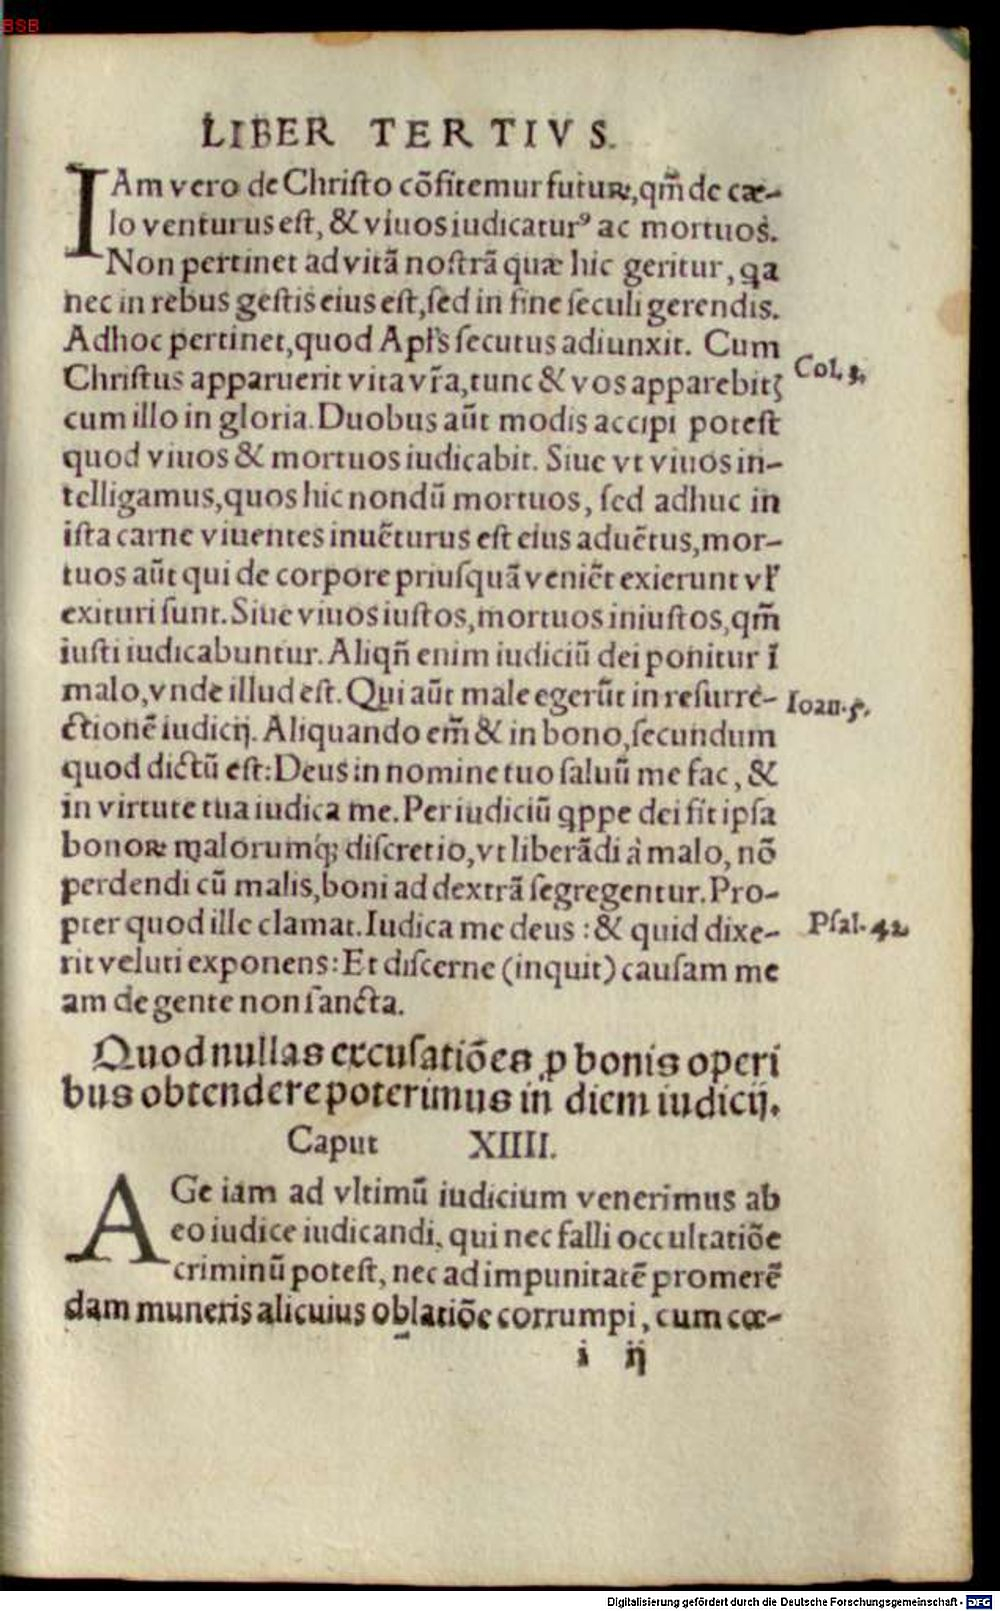 BSB
LIBER TERTIVS.
IAm vero de Christo cõfitemur futuꝝ, qm̃ de cæ-
lo venturus est, & viuos iudicaturꝰ ac mortuos.
Non pertinet ad vitã nostrã quæ hic geritur, qa
nec in rebus gestis eius est, sed in fine seculi gerendis.
Ad hoc pertinet, quod Apl's secutus adiunxit. Cum
Christus apparuerit vita vr̃a, tunc & vos apparebitꝭ
cum illo in gloria. Duobus aũt modis accipi potest
quod viuos & mortuos iudicabit. Siue vt viuos in-
telligamus, quos hic nondũ mortuos, sed adhuc in
ista carne viuentes inuẽturus est eius aduẽtus, mor-
tuos aũt qui de corpore priusquã veniẽt exierunt vl'
exituri sunt. Siue viuos iustos, mortuos iniustos, qm̃
iusti iudicabuntur. Aliqñ enim iudiciũ dei ponitur ĩ
malo, vnde illud est. Qui aũt male egerũt in resurre-
ctionẽ iudicij. Aliquando em̃ & in bono, secundum
quod dictũ est: Deus in nomine tuo saluũ me fac, &
in virtute tua iudica me. Per iudiciũ ꝗppe dei fit ipsa
bonoꝝ malorumqꝫ discretio, vt liberãdi à malo, nõ
perdendi cũ malis, boni ad dextrã segregentur. Pro-
pter quod ille clamat. Iudica me deus : & quid dixe-
rit veluti exponens: Et discerne (inquit) causam me
am de gente non sancta.
Col. 3.
Ioan. 5.
Psal. 42
Quod nullas excusatiões ꝓ bonis operi
bus obtendere poterimus in diem iudicij.
Caput XIIII.
AGe iam ad vltimũ iudicium venerimus ab
eo iudice iudicandi, qui nec falli occultatiõe
criminũ potest, nec ad impunitatẽ promerẽ
dam muneris alicuius oblatiõe corrumpi, cum cœ-
i ij
Digitalisierung gefördert durch die Deutsche Forschungsgemeinschaft - DFG